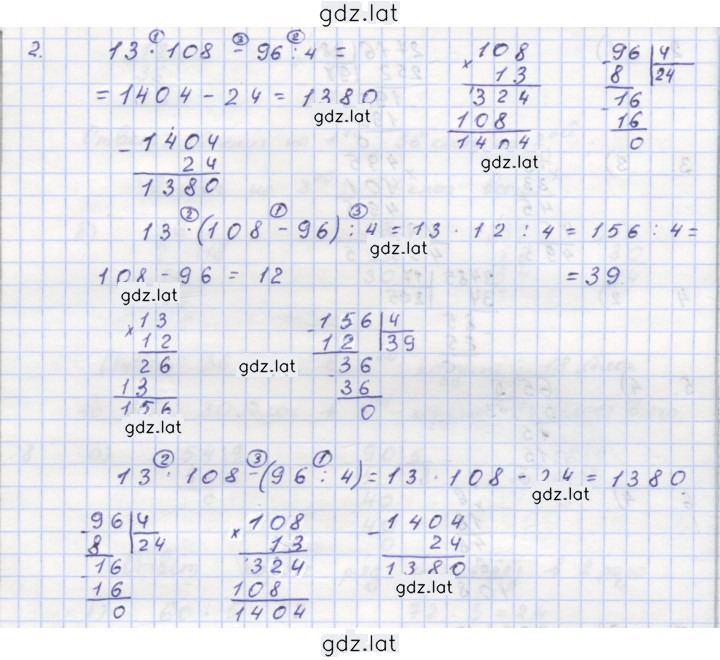 gdz.lat
2. 13 · 108 - 96 : 4 =
① ③ ②
= 1404 - 24 = 1380
gdz.lat
- 1404
24
1380
× 108
13
324
108
1404
gdz.lat
- 96 | 4
8 | 24
- 16
16
0
② ① ③
13 · (108 - 96) : 4 = 13 · 12 : 4 = 156 : 4 =
gdz.lat
108 - 96 = 12
= 39
gdz.lat
× 13
12
26
13
156
gdz.lat
- 156 | 4
12 | 39
- 36
36
0
gdz.lat
② ③ ①
13 · 108 - (96 : 4) = 13 · 108 - 24 = 1380
gdz.lat
- 96 | 4
8 | 24
- 16
16
0
× 108
13
324
108
1404
- 1404
24
1380
gdz.lat
gdz.lat